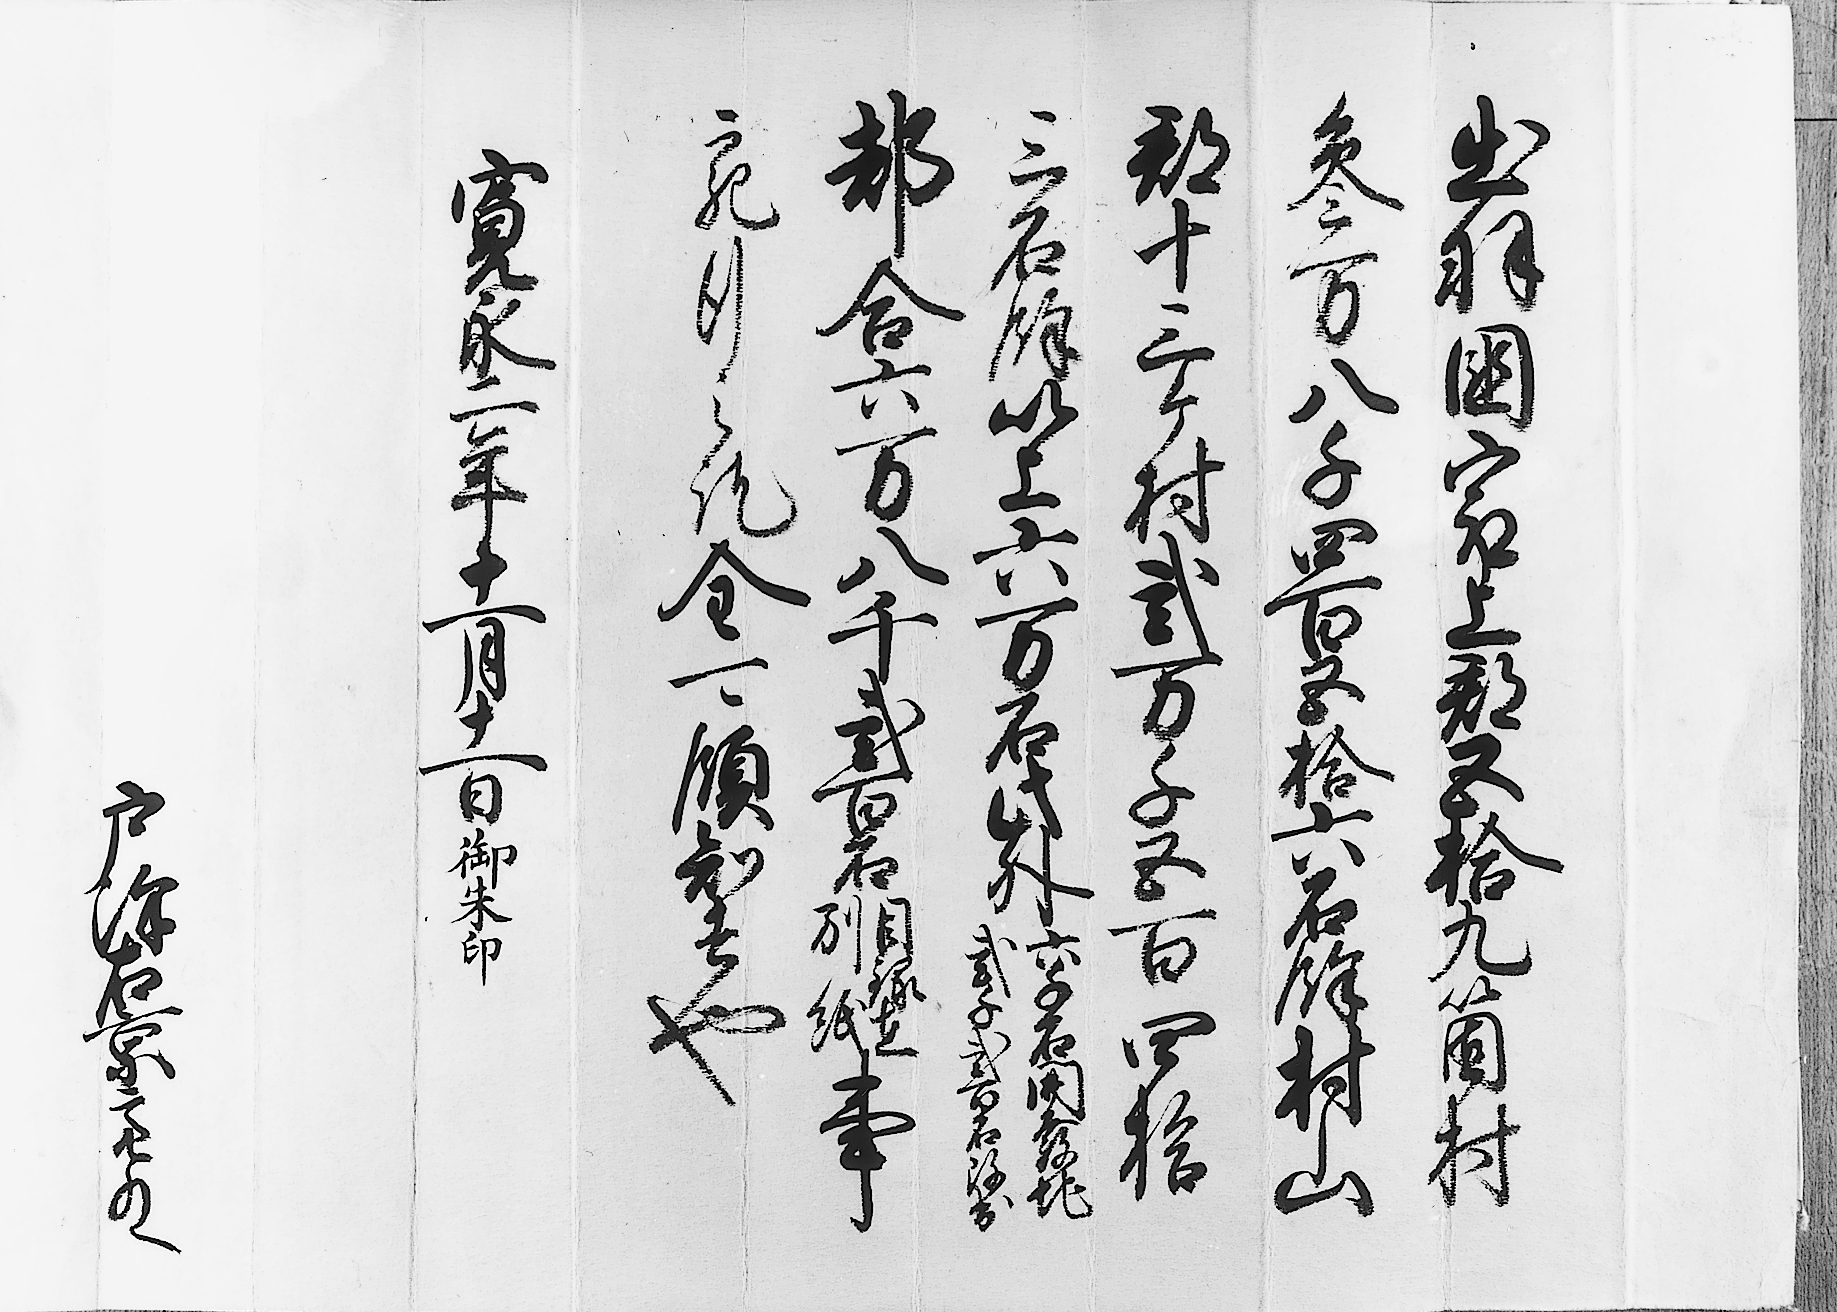 出羽国最上郡五拾九箇村
参万八千四百五拾六石余村山
郡十三ケ村弐万千五百四拾
三石余以上六万石此外六千石開発地弐千弐百石改出
都合六万八千弐百石目録在別紙事
宛行之訖全可領知者也
寛永二年十一月十一日御朱印
戸沢右京亮との